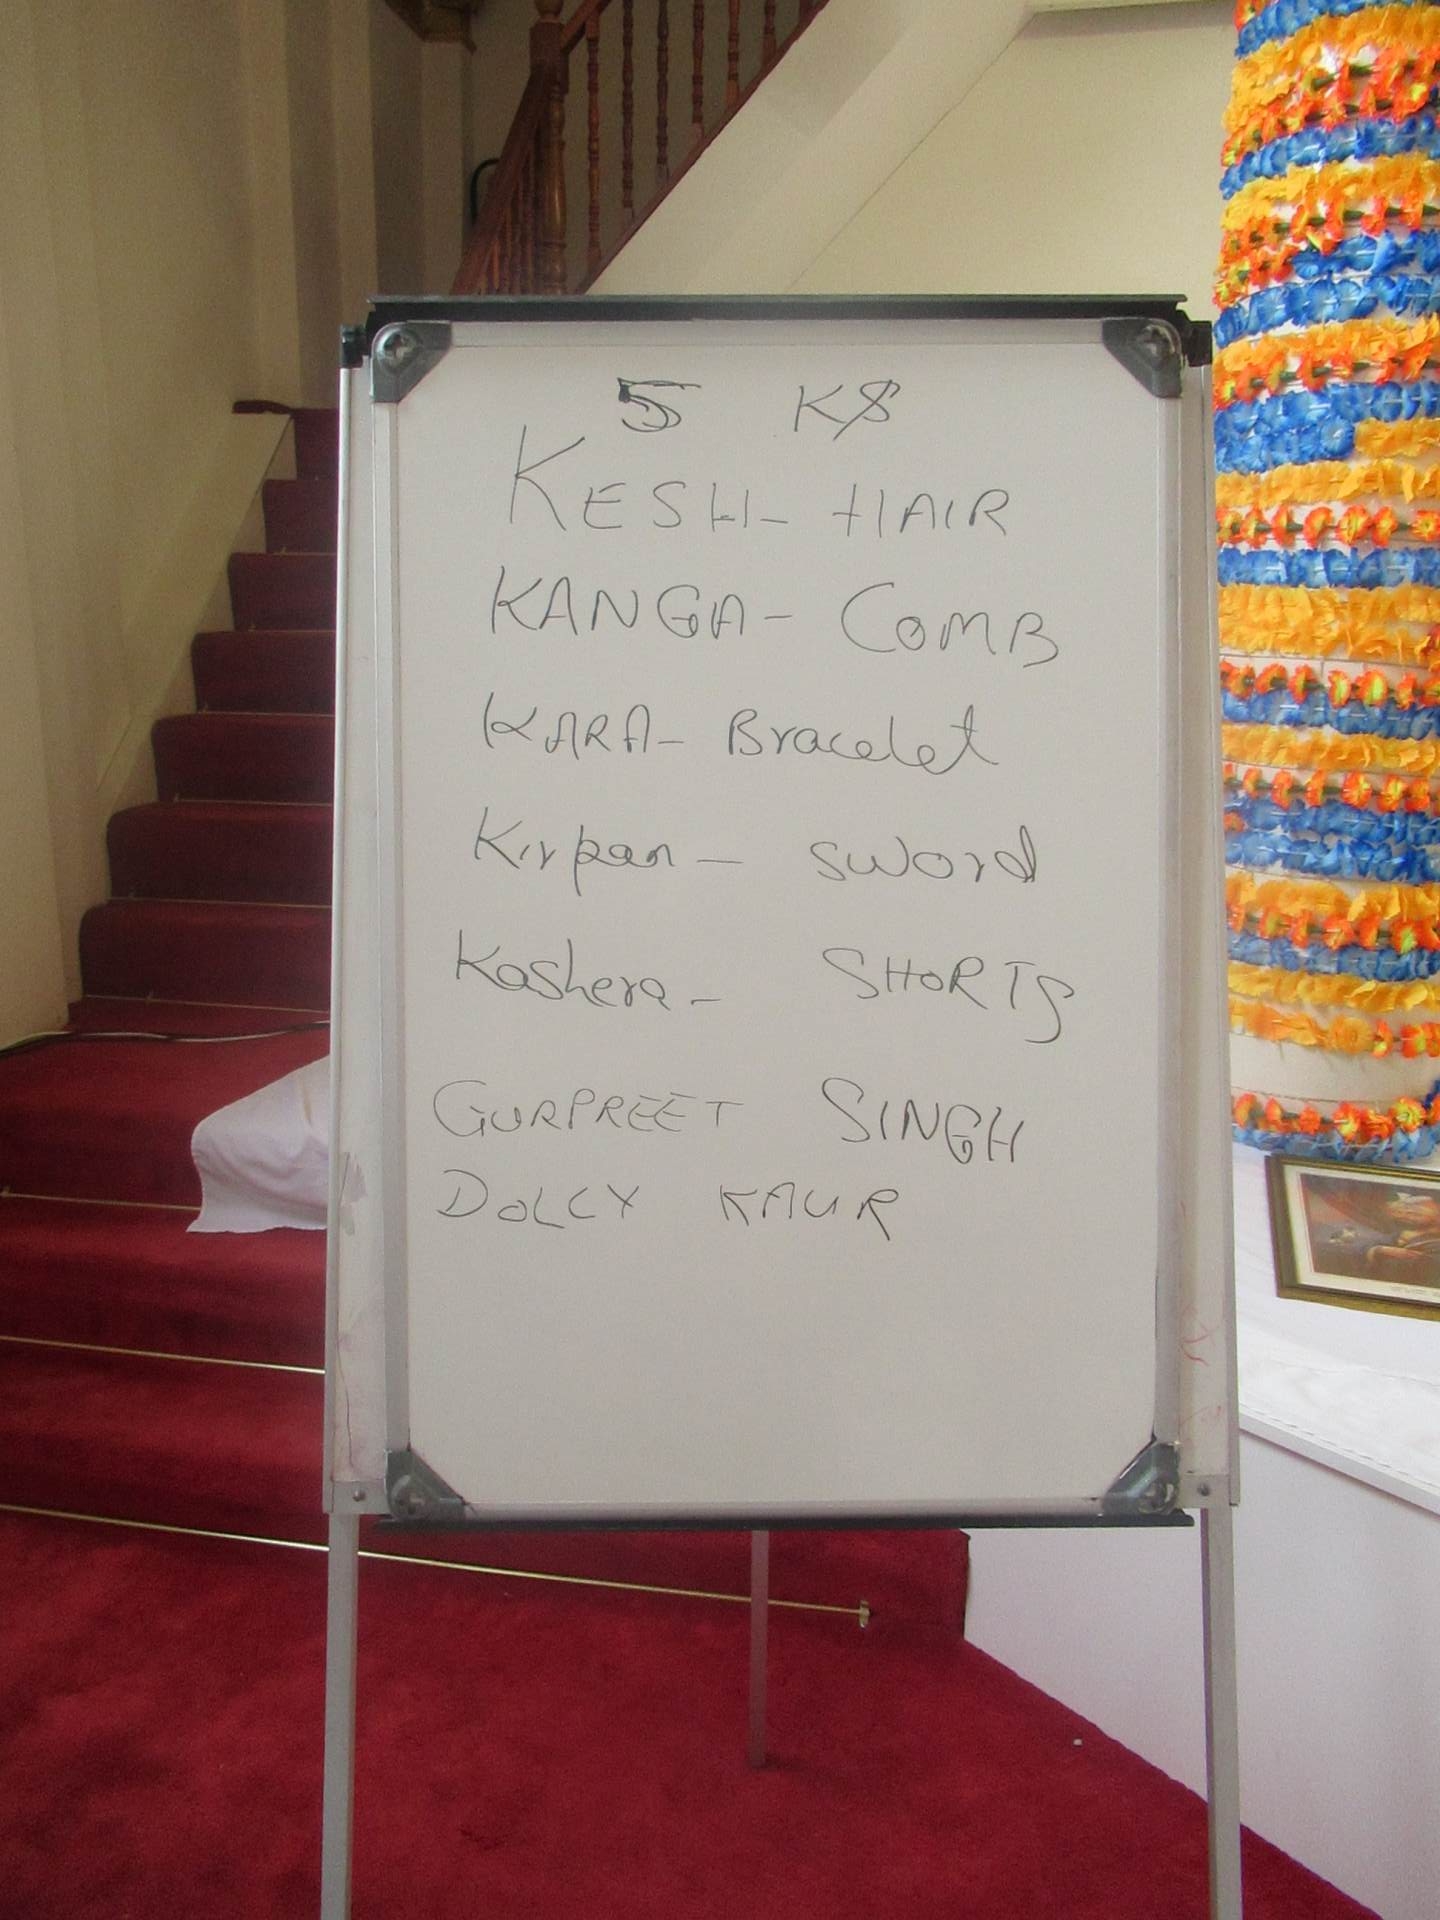 5 KS
KESH - HAIR
KANGA - COMB
KARA - Bracelet
Kirpan - sword
Kashera - SHORTS
GURPREET SINGH
DOLLY KAUR